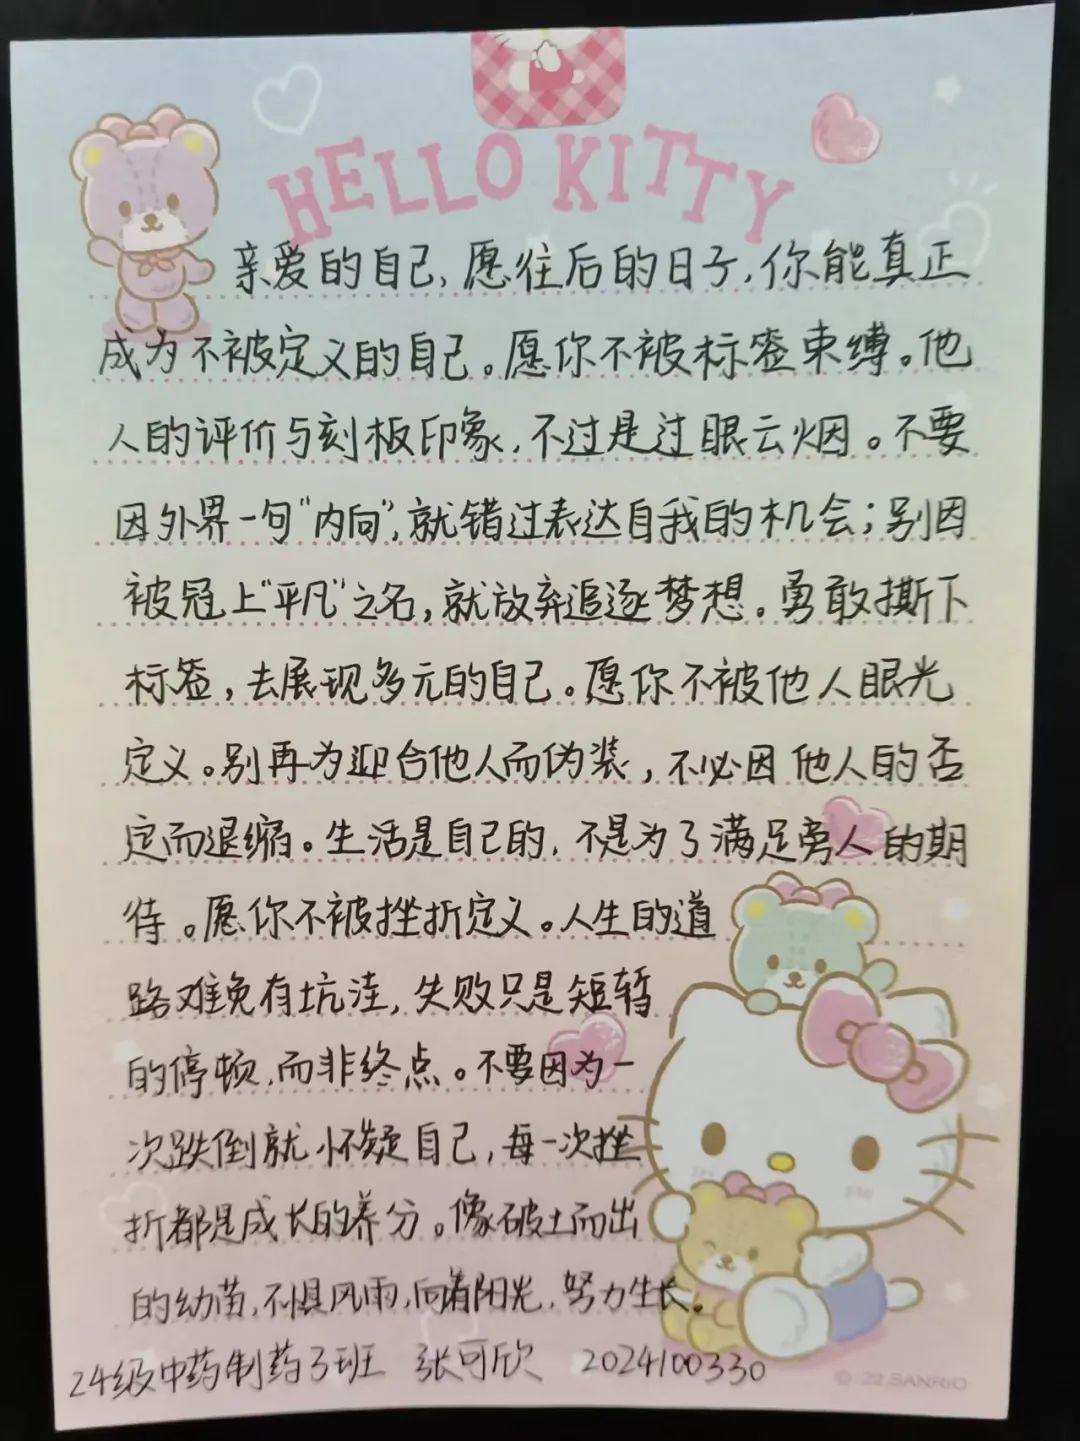 HELLO KITTY
亲爱的自己,愿往后的日子,你能真正
成为不被定义的自己。愿你不被标签束缚。他
人的评价与刻板印象,不过是过眼云烟。不要
因外界一句"内向",就错过表达自我的机会;别因
被冠上"平凡"之名,就放弃追逐梦想。勇敢撕下
标签,去展现多元的自己。愿你不被他人眼光
定义。别再为迎合他人而伪装,不必因他人的否
定而退缩。生活是自己的,不是为了满足旁人的期
待。愿你不被挫折定义。人生的道
路难免有坑洼,失败只是短暂
的停顿,而非终点。不要因为一
次跌倒就怀疑自己,每一次挫
折都是成长的养分。像破土而出
的幼苗,不惧风雨,向着阳光,努力生长。
24级中药制药3班 张可欣 2024100330
© '22 SANRIO